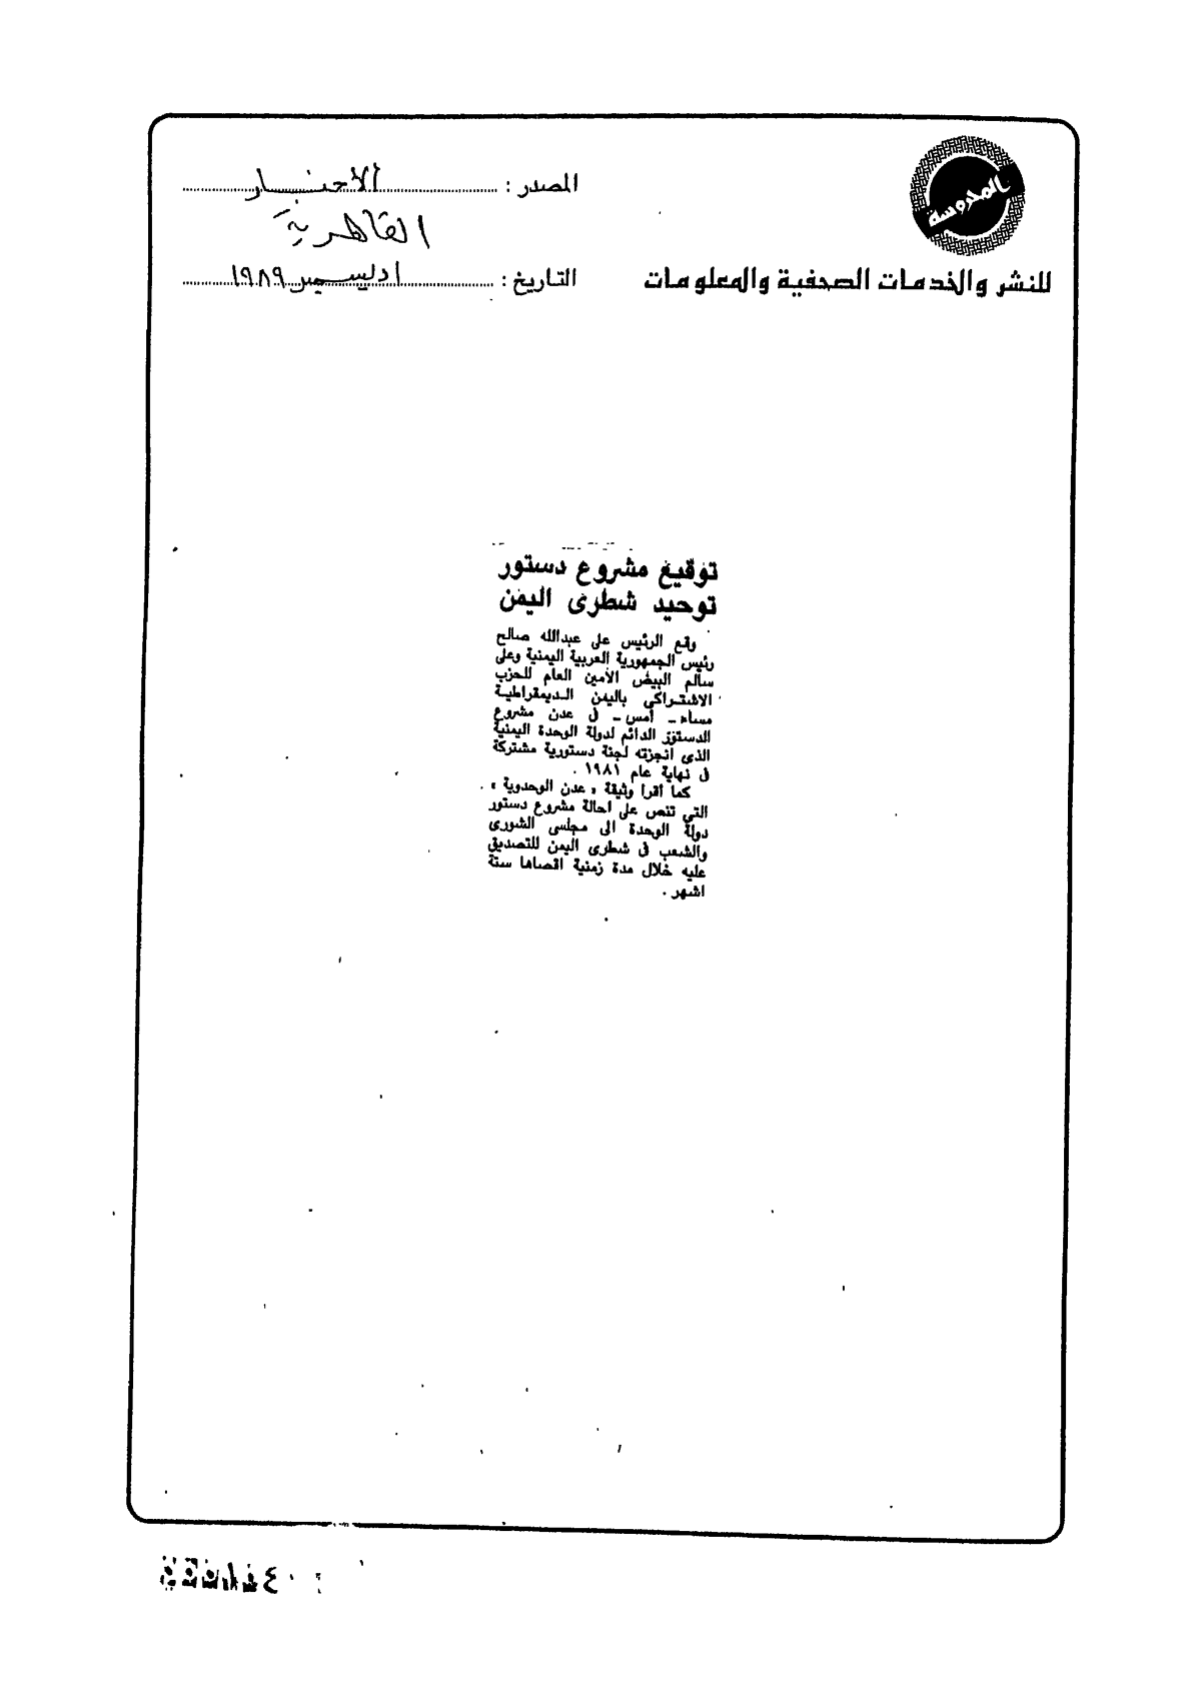 المحروسة
للنشر والخدمات الصحفية والمعلومات
المصدر : الأخبار
القاهرية
التاريخ : ١ ديسمبر ١٩٨٩
توقيع مشروع دستور
توحيد شطرى اليمن
وقع الرئيس على عبدالله صالح
رئيس الجمهورية العربية اليمنية وعلى
سالم البيض الأمين العام للحزب
الاشتراكى باليمن الديمقراطية
مساء ـ أمس ـ فى عدن مشروع
الدستور الدائم لدولة الوحدة اليمنية
الذى انجزته لجنة دستورية مشتركة
فى نهاية عام ١٩٨١ .
كما أقرا وثيقة « عدن الوحدوية » .
التي تنص على احالة مشروع دستور
دولة الوحدة الى مجلسى الشورى
والشعب فى شطرى اليمن للتصديق
عليه خلال مدة زمنية اقصاها ستة
اشهر .